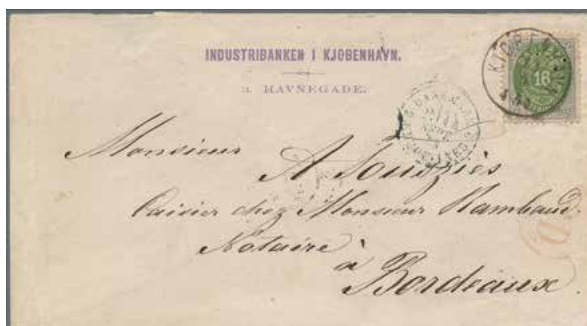 INDUSTRIBANKEN I KJØBENHAVN.
3. HAVNEGADE.
16
Monsieur A Souziès
Caissier chez Monsieur Rambaud
Notaire
à
Bordeaux.